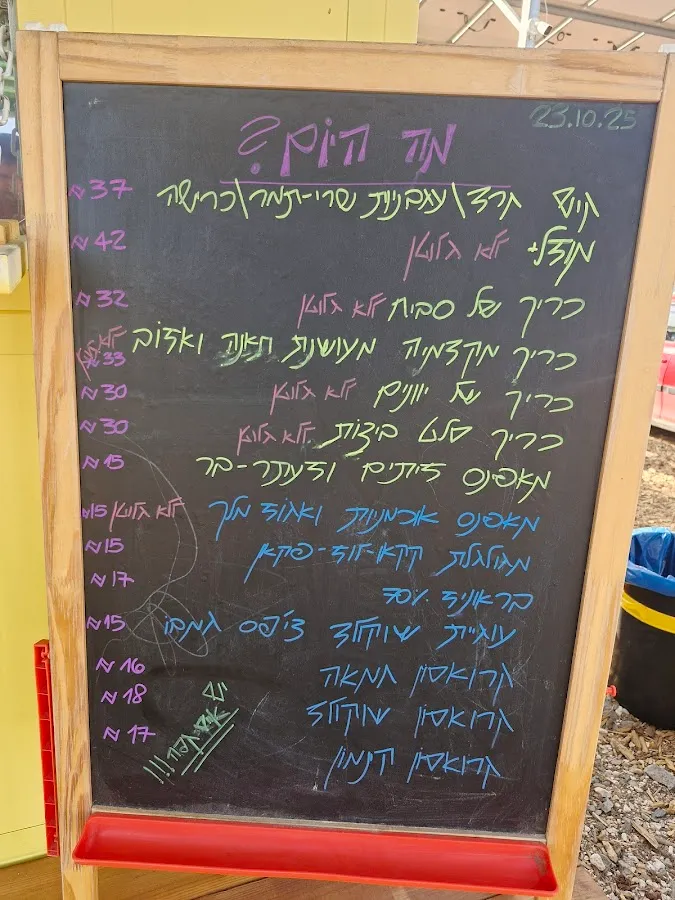 23.10.25
מה היום?
קיש תרד\עגבניות שרי-תמר\כרישה ₪37
+מנודל ללא גלוטן ₪42
כריך של סבית ללא גלוטן ₪32
כריך מקדמיה מעושנת תאנה ואגוז ללא גלוטן ₪33
כריך של יוונים ללא גלוטן ₪30
כריך סלט ביצות ללא גלוטן ₪30
מאפינס זיתים וזעתר-בר ₪15
מאפינס אוכמניות ואגוז מלך ללא גלוטן ₪15
מגולגלת קקאו-לוז-פקאן ₪15
בראוניז ₪17
עוגיית שוקולד צ׳יפס גמבו ₪15
קרואסון חמאה ₪16
קרואסון שוקולד ₪18
קרואסון קינמון ₪17
יש אייס קפה!!!